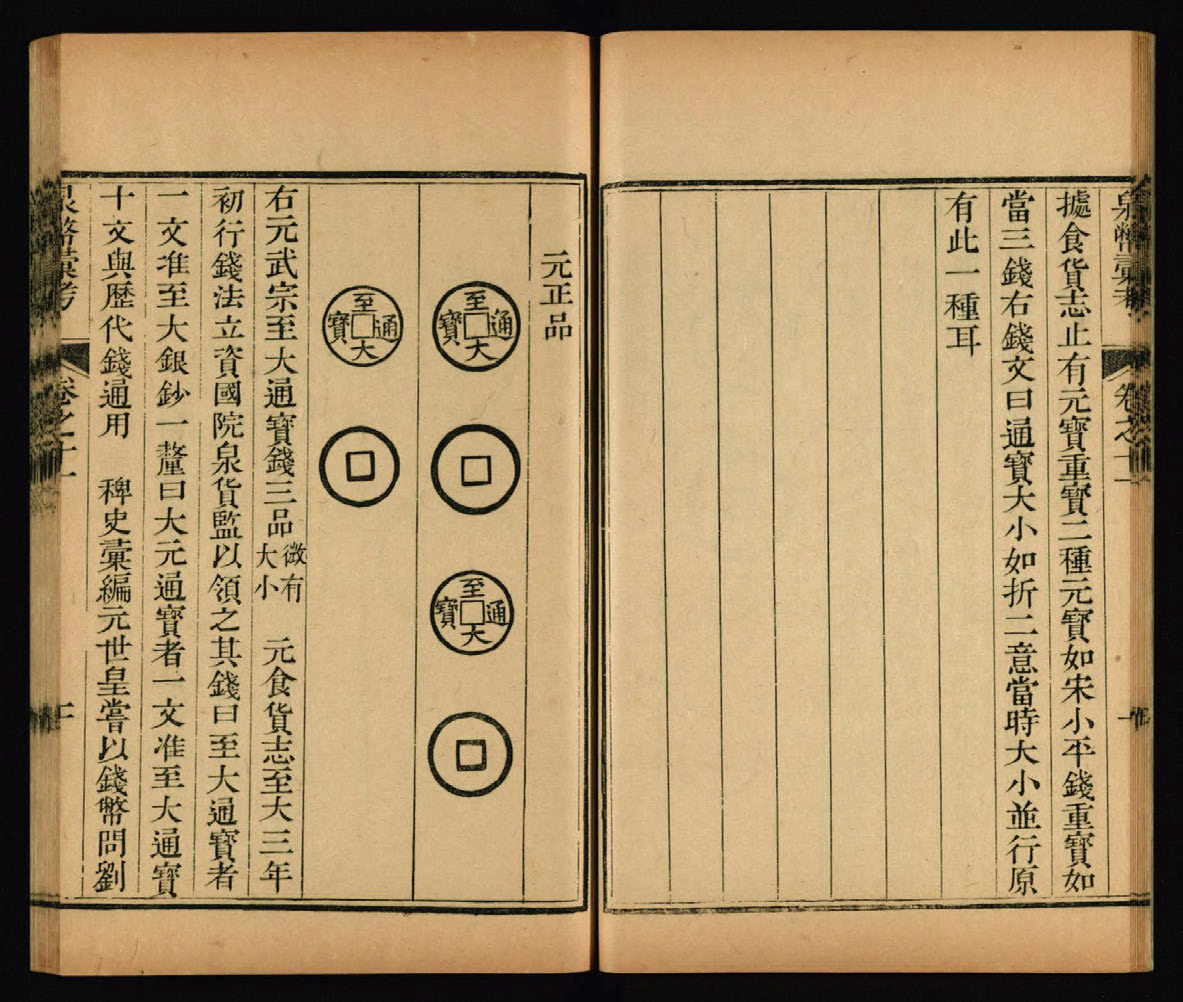 泉幣彙考
卷之十一
據食貨志止有元寶重寶二種元寶如宋小平錢重寶如
當三錢右錢文曰通寶大小如折二意當時大小並行原
有此一種耳
元正品
至大通寶
至大通寶
至大通寶
右元武宗至大通寶錢三品微有大小　元食貨志至大三年
初行錢法立資國院泉貨監以領之其錢曰至大通寶者
一文准至大銀鈔一釐曰大元通寶者一文准至大通寶
十文與歷代錢通用　稗史彙編元世皇嘗以錢幣問劉
泉幣彙考
卷之十一